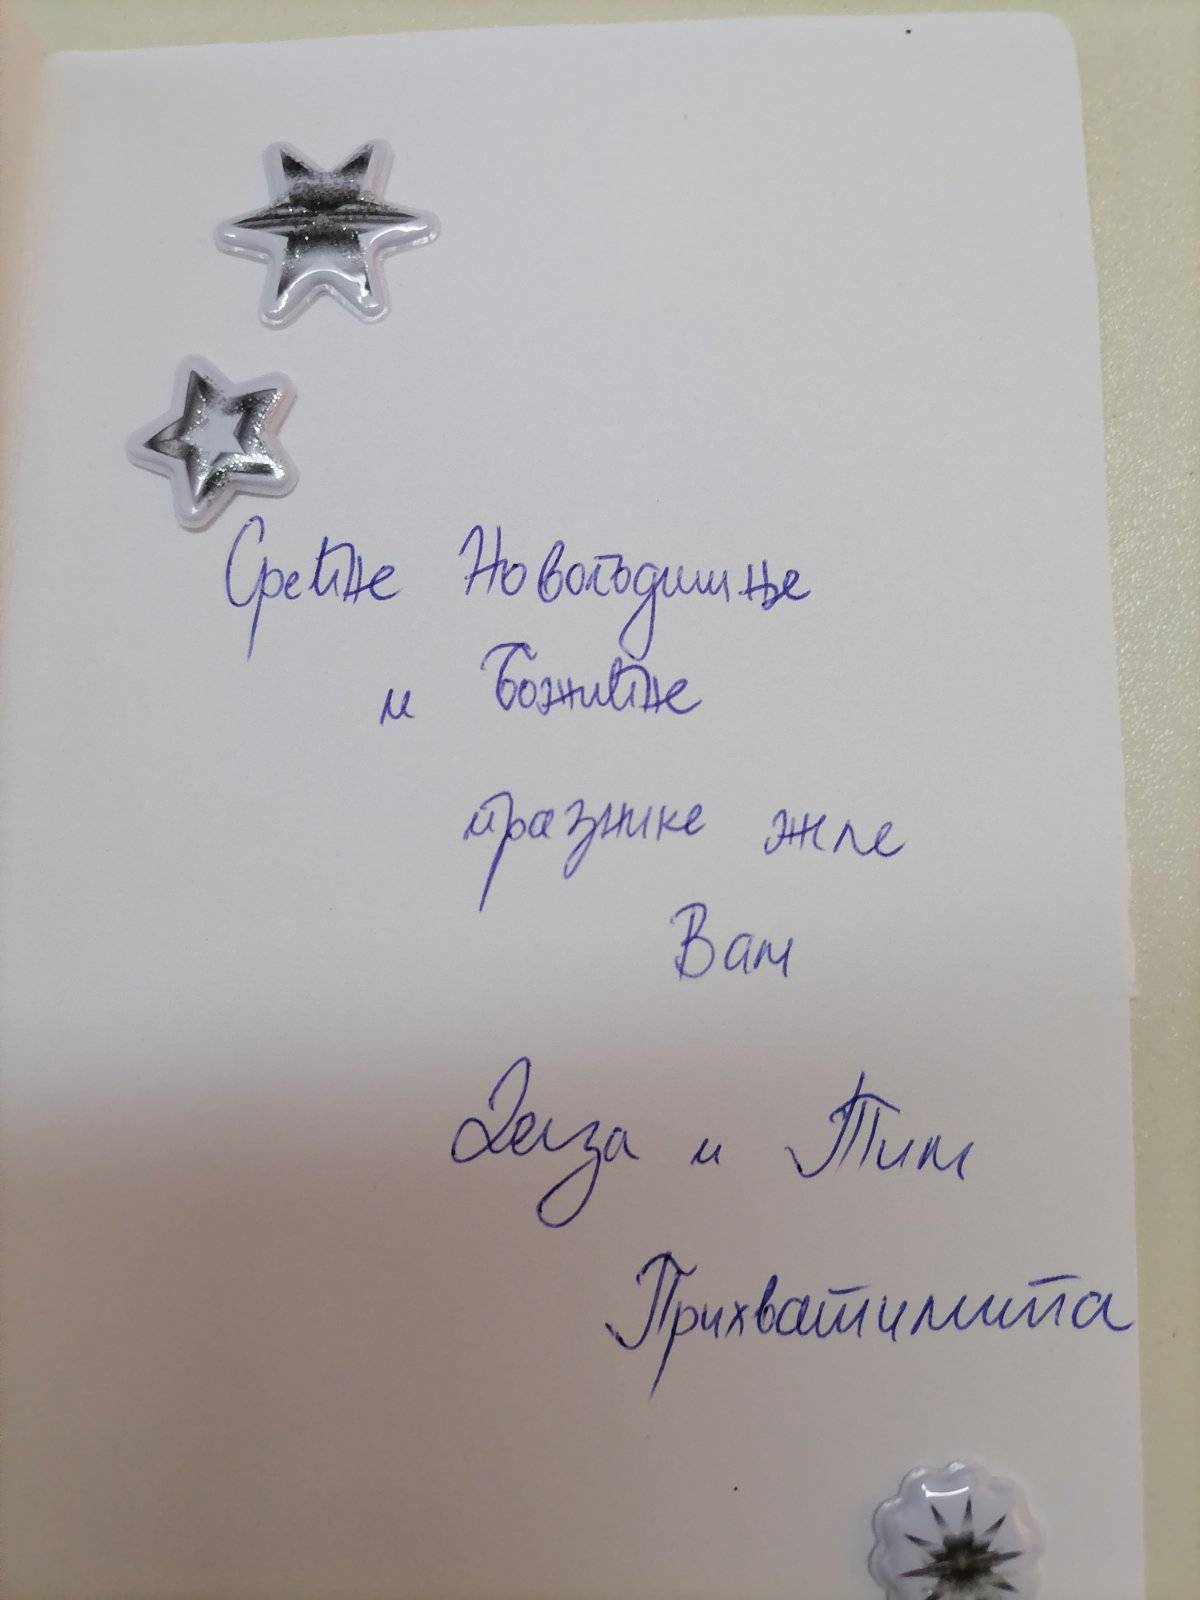 Срећне Новогодишње
и Божићне
празнике желе
Вам
Деиза и Тим
Прихватилишта